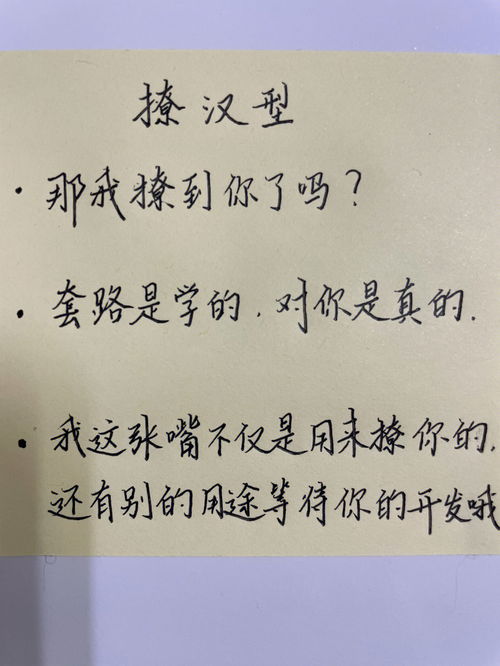 撩汉型
·那我撩到你了吗？
·套路是学的.对你是真的.
·我这张嘴不仅是用来撩你的.
还有别的用途等待你的开发哦